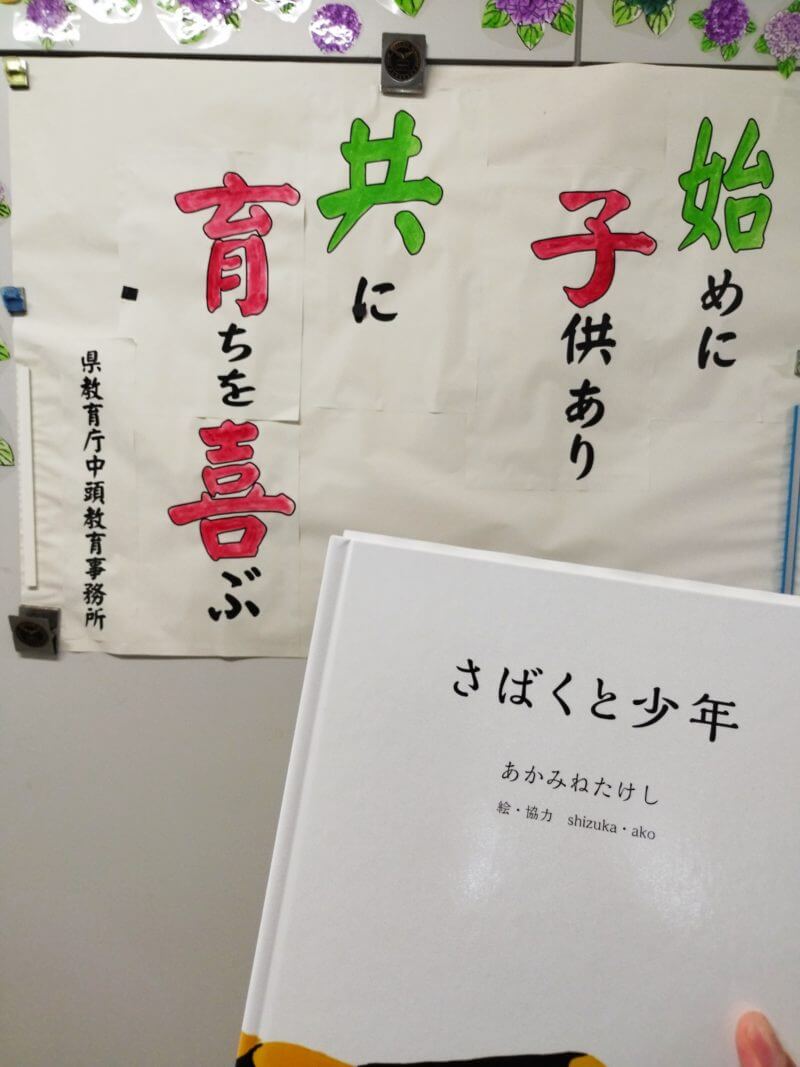 始めに
子供あり
共に
育ちを喜ぶ
県教育庁中頭教育事務所
さばくと少年
あかみねたけし
絵・協力 shizuka・ako